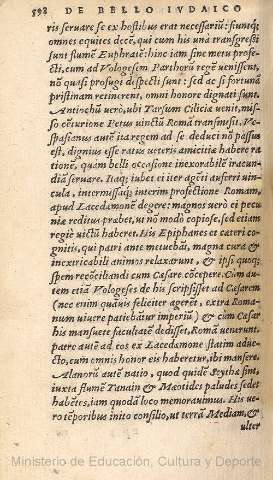 598 DE BELLO IVDAICO
ris seruare se ex hostibus erat necessariũ: suntq́;
omnes equites decẽ, qui cum his una transgressi
sunt flumẽ Euphratẽ: hinc iam sine metu profe-
cti, cum ad Vologesem Parthorũ regẽ uenissent,
nõ quasi profugæ despecti sunt: sed ac si fortunã
pristinam retinerent, omni honore dignati sunt.
Antiochũ uerò, ubi Tarsum Ciliciæ uenit, mis-
so cẽturione Petus uinctũ Romã transmisit. Ve-
spasianus autẽ ita regem ad se deduci nõ passus
est, dignius esse ratus ueteris amicitiæ habere ra
tionẽ, quam belli occasione inexorabilẽ iracun-
diã seruare. Itaq; iubet ei iter agẽti auferri uin-
cula, intermissaq; interim profectione Romam,
apud Lacedæmonẽ degere: magnos uerò ei pecu
niæ reditus præbet, ut nõ modo copiosè, sed etiam
regiè uictũ haberet. His Epiphanes et cæteri co-
gnitis, qui patri antè metuebãt, magna cura &
inextricabili animos relaxarunt, & ipsi quoq;
spem recõciliandi cum Cæsare cõcepere. Cum au
tem etiã Vologeses de his scripsisset ad Cæsarem
(nec enim quãuis feliciter agerẽt, extra Roma-
num uiuere patiebãtur imperiũ) & cùm Cæsar
his mansuetè facultatẽ dedisset, Romã uenerunt.
patre autẽ ad eos ex Lacedæmone statim addu-
cto, cum omnis honor eis haberetur, ibi mansere.
Alanorũ autẽ natio, quod quidẽ Scythæ sint,
iuxta flumẽ Tanain & Mæotides paludes sedes
habẽtes, iam quodã loco memorauimus. His ue-
ro tẽporibus inito consilio, ut terrã Mediam, &
ulter
Ministerio de Educación, Cultura y Deporte